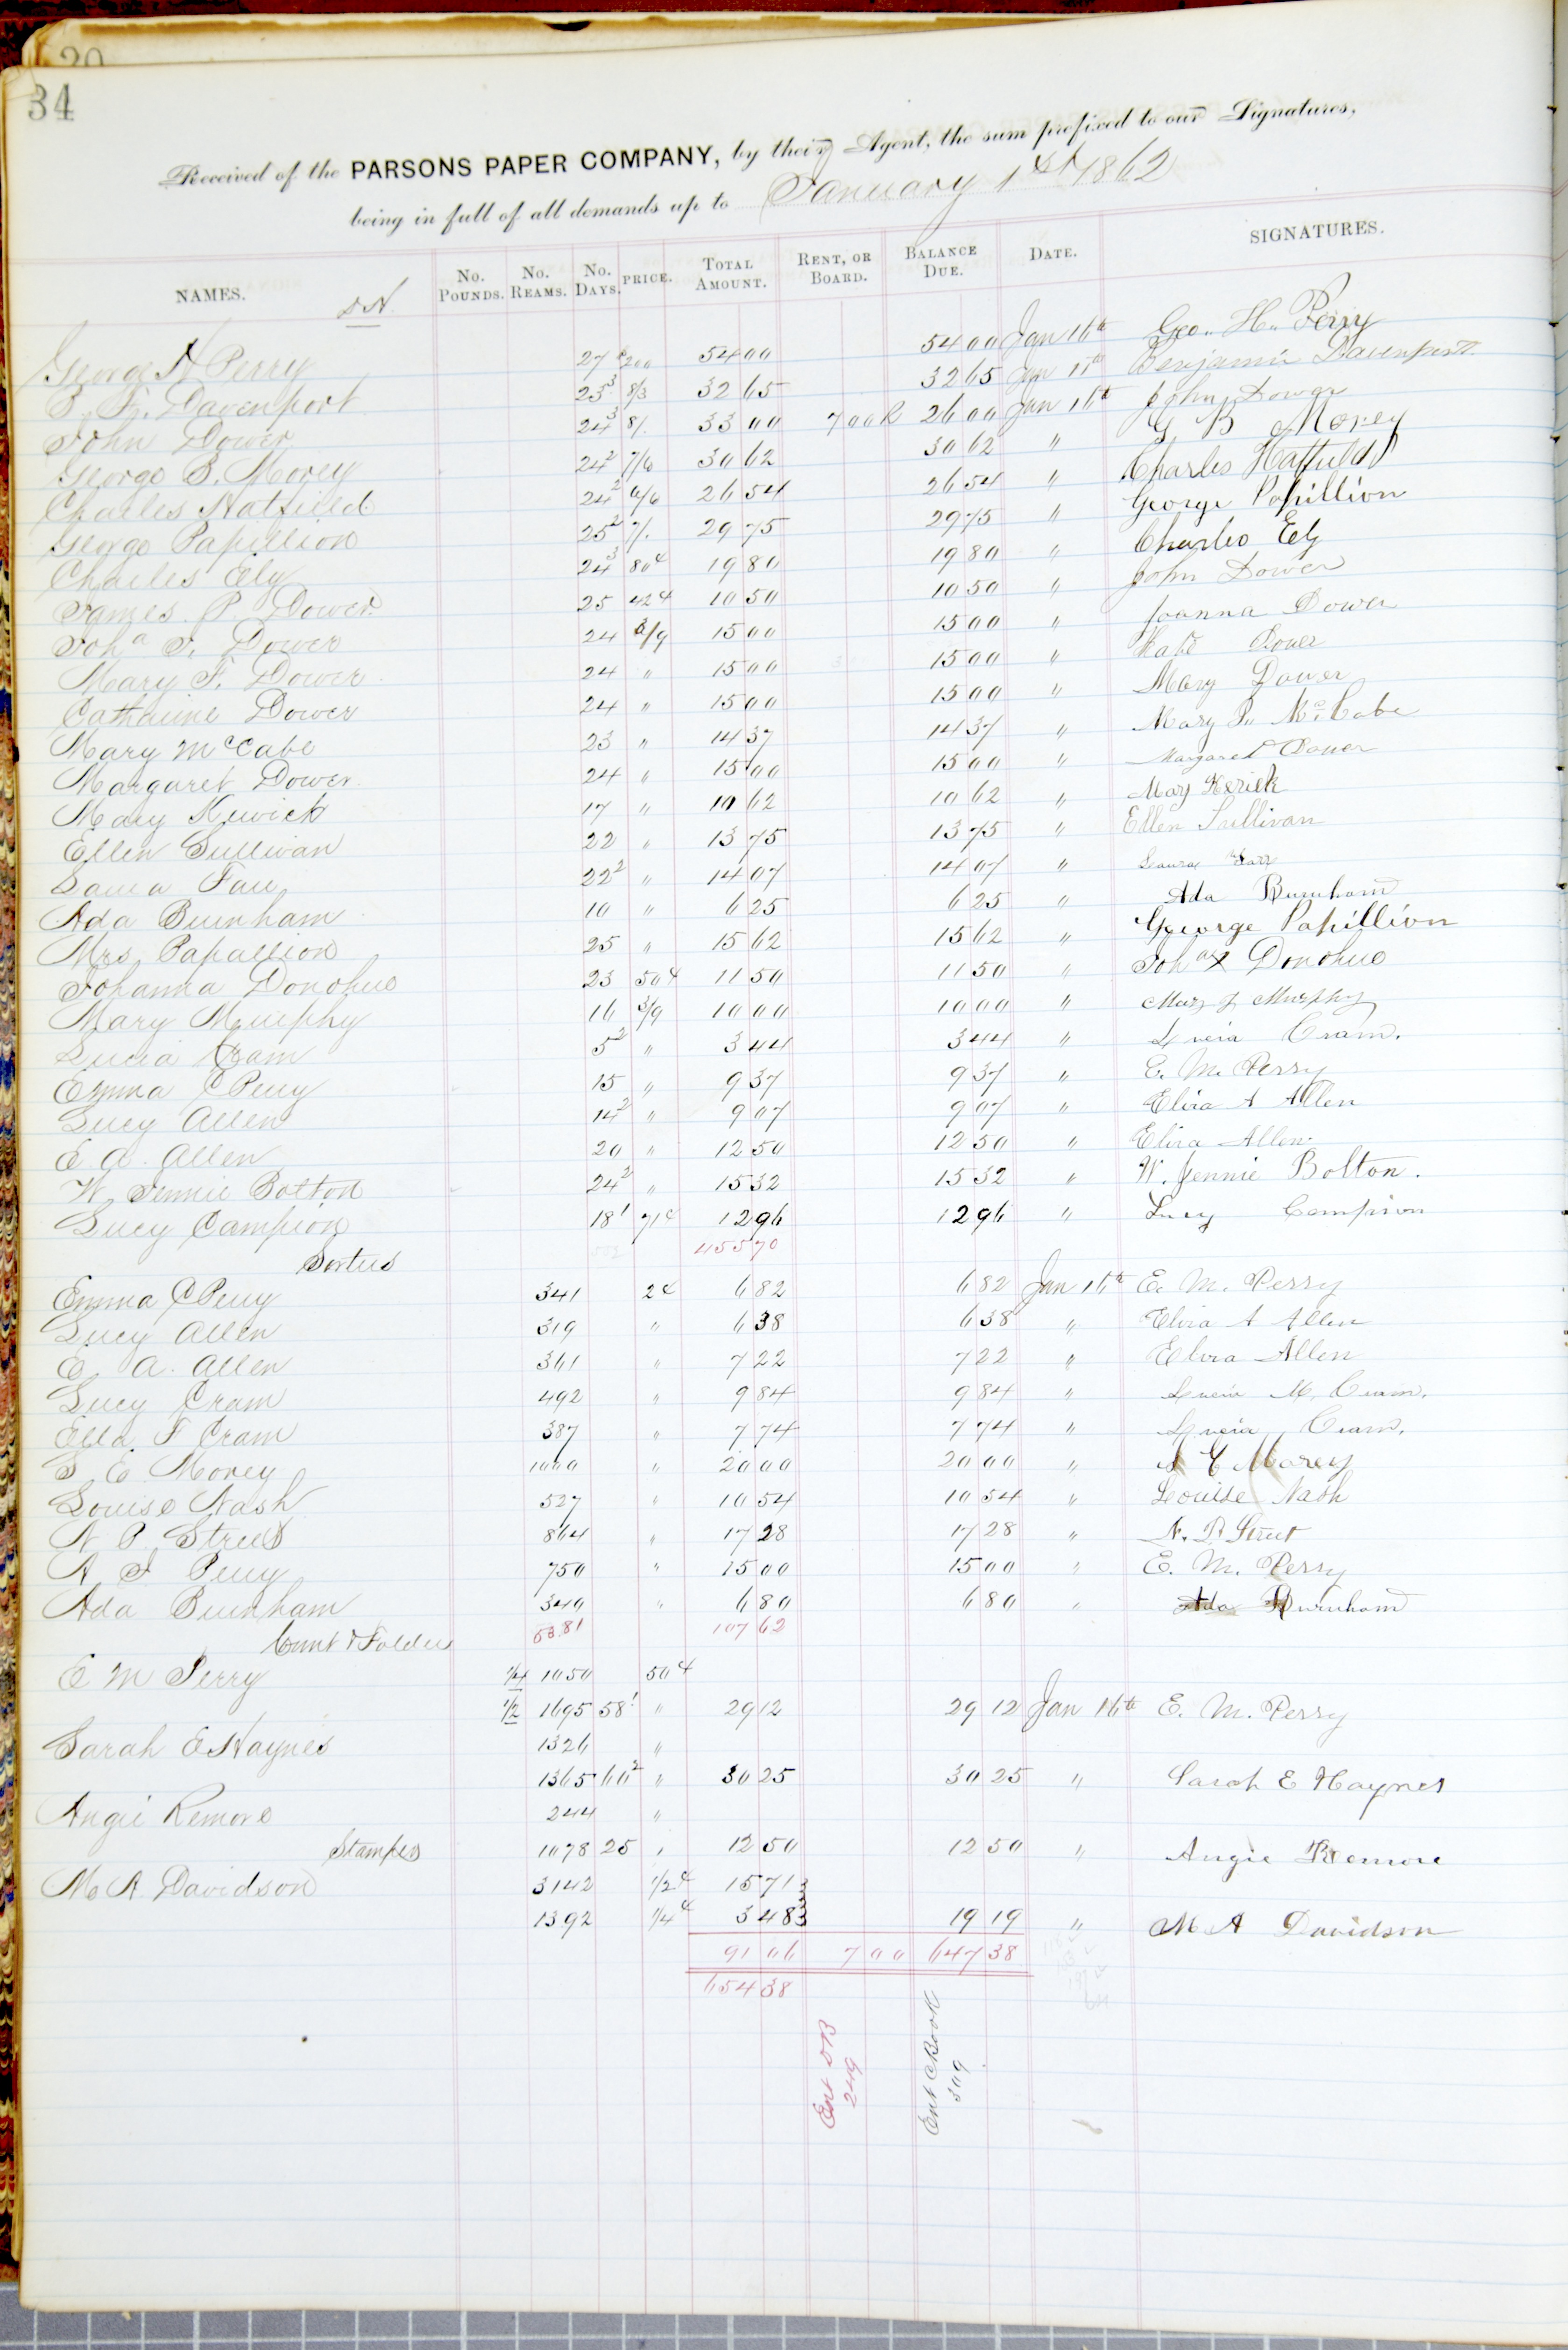 20
34
Received of the PARSONS PAPER COMPANY, by their Agent, the sum prefixed to our Signatures,
being in full of all demands up to January 1st 1862
NAMES. No. POUNDS. No. REAMS. No. DAYS. PRICE. TOTAL AMOUNT. RENT, OR BOARD. BALANCE DUE. DATE. SIGNATURES.
George H Perry 27 200 54 00 54 00 Jan 16th Geo. H. Perry
B. F. Davenport 25 3 8/3 32 65 32 65 Jan Benjamin Davenport
John Dower 24 3 8/. 33 00 7 00 R 26 00 Jan 16th John Dower
George B. Morey 24 2 7/6 30 62 30 62 " G B Morey
Charles Hatfield 24 2 6/6 26 54 26 54 " Charles Hatfield
George Papillion 25 2 7/. 29 75 29 75 " George Papillion
Charles Ely 24 3 80 ¢ 19 80 19 80 " Charles Ely
James P. Dower 25 42 ¢ 10 50 10 50 " John Dower
Joha F. Dower 24 3/9 15 00 15 00 " Joanna Dower
Mary F. Dower 24 " 15 00 15 00 " Kate Dower
Catharine Dower 24 " 15 00 15 00 " Mary Dower
Mary McCabe 23 " 14 37 14 37 " Mary McCabe
Margaret Dower 24 " 15 00 15 00 " Margaret Dower
Mary Kerrick 17 " 10 62 10 62 " Mary Kerick
Ellen Sullivan 22 " 13 75 13 75 " Ellen Sullivan
Laura Farr 22 2 " 14 07 14 07 " Laura Farr
Ada Burnham 10 " 6 25 6 25 " Ada Burnham
Mrs Papallion 25 " 15 62 15 62 " George Papillion
Johanna Donohue 23 50 ¢ 11 50 11 50 " Joha x Donohue
Mary Murphy 16 3/9 10 00 10 00 " Mary Murphy
Lucia Cram 5 2 " 3 44 3 44 " Lucia Cram.
Emma C Perry 15 " 9 37 9 37 " E. M. Perry
Lucy Allen 14 2 " 9 07 9 07 " Elvira A Allen
E. A. Allen 20 " 12 50 12 50 " Elvira Allen
W. Jennie Bolton 24 2 " 15 32 15 32 " W. Jennie Bolton.
Lucy Campion 18 1 71 ¢ 12 96 12 96 " Lucy Campion
455 70
Sorters
Emma C Perry 341 2 ¢ 6 82 6 82 Jan 16th E. M. Perry
Lucy Allen 319 " 6 38 6 38 " Elvira A Allen
E. A. Allen 361 " 7 22 7 22 " Elvira Allen
Lucy Cram 492 " 9 84 9 84 " Lucia M. Cram.
Ella F Cram 387 " 7 74 7 74 " Lucia Cram.
S. E. Morey 1000 " 20 00 20 00 " S E Morey
Louise Nash 527 " 10 54 10 54 " Louise Nash
N P. Street 864 " 17 28 17 28 " N. P. Street
A S Perry 750 " 15 00 15 00 " E. M. Perry
Ada Burnham 340 " 6 80 6 80 " Ada Burnham
5381 107 62
Count & Folders
E M Perry 1/4 1050 50 ¢
1/2 1695 58 1 " 29 12 29 12 Jan 16th E. M. Perry
Sarah E Haynes 1326 "
1365 60 2 " 30 25 30 25 " Sarah E Haynes
Angie Remore 244 "
1078 25 " 12 50 12 50 " Angie Remore
Stampers
M. A. Davidson 3142 1/2 ¢ 15 71
1392 1/4 ¢ 3 48 19 19 " M. A Davidson
91 06 7 00 647 38
654 38
Ent DB 249
Ent C Book 309